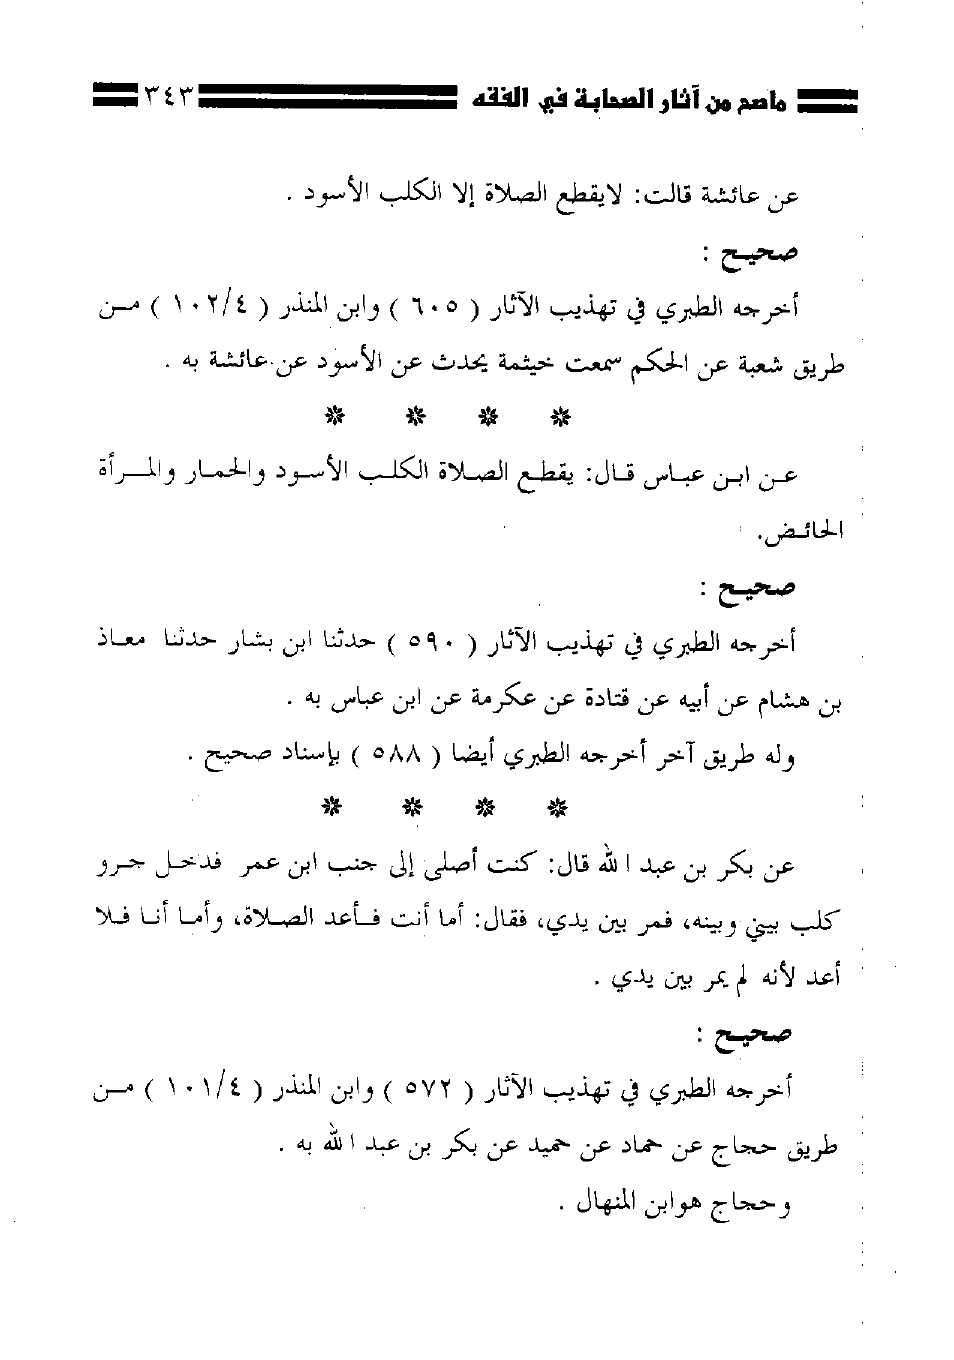 ماصح من آثار الصحابة في الفقه ٣٤٣
عن عائشة قالت: لايقطع الصلاة إلا الكلب الأسود .
صحيح :
أخرجه الطبري في تهذيب الآثار ( ٦٠٥ ) وابن المنذر ( ١٠٢/٤ ) من
طريق شعبة عن الحكم سمعت خيثمة يحدث عن الأسود عن عائشة به .
* * * *
عن ابن عباس قال: يقطع الصلاة الكلب الأسود والحمار والمرأة
الحائض.
صحيح :
أخرجه الطبري في تهذيب الآثار ( ٥٩٠ ) حدثنا ابن بشار حدثنا معاذ
بن هشام عن أبيه عن قتادة عن عكرمة عن ابن عباس به .
وله طريق آخر أخرجه الطبري أيضا ( ٥٨٨ ) بإسناد صحيح .
* * * *
عن بكر بن عبد الله قال: كنت أصلى إلى جنب ابن عمر فدخل جرو
كلب بيني وبينه، فمر بين يدي، فقال: أما أنت فأعد الصلاة، وأما أنا فلا
أعد لأنه لم يمر بين يدي .
صحيح :
أخرجه الطبري في تهذيب الآثار ( ٥٧٢ ) وابن المنذر ( ١٠١/٤ ) من
طريق حجاج عن حماد عن حميد عن بكر بن عبد الله به .
وحجاج هوابن المنهال .